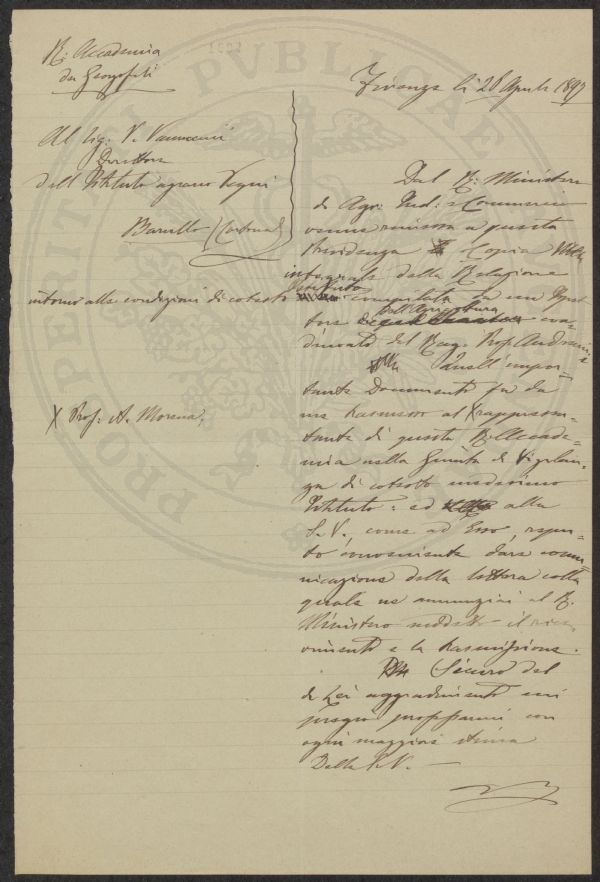 R. Accademia
dei Georgofili
Firenze li 28 Aprile 1897
Al Sig: V. Vannuccini
Direttore
dell'Istituto agrario Vegni
Barullo (Cortona)
Dal R. Ministero
di Agr: Ind: e Commercio
venne rimessa a questa
Presidenza Copia
integrale della Relazione
intorno alle condizioni di cotesto Istituto compilata da un Ispet=
tore dell'Agricoltura coa=
diuvato dal Rag. Prof.
Quell'impor=
tante Documento fu da
me trasmesso al X rappresen=
tante di questa R. Accade=
mia nella Giunta di Vigilan=
za di cotesto medesimo
Istituto: ed alla
S.V., come ad Esso, repu=
to conveniente dare comu=
nicazione della lettera colla
quale ne annunziai al R.
Ministero suddetto il rice=
vimento e la trasmissione.
Sicuro del
di Lei aggradimento mi
pregio professarmi con
ogni maggiore stima
Della S.V. —
X Prof: A. Morena,
PROSPERITATI PVBLICAE